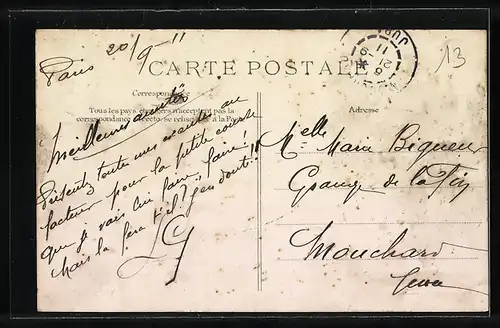 Paris 20/9-11
13
JURA
CARTE POSTALE
Correspondance
Tous les pays étrangers n'acceptent pas la
correspondance au recto, se refuser à la Poste
Adresse
Meilleures amitiés
Présentez toutes mes excuses au
facteur pour la petite course
que je vais lui faire faire!
Mais la fera-t-il? j'en doute!!
LG
Melle Marie Bigueur
Grange de
Mouchard
Jura